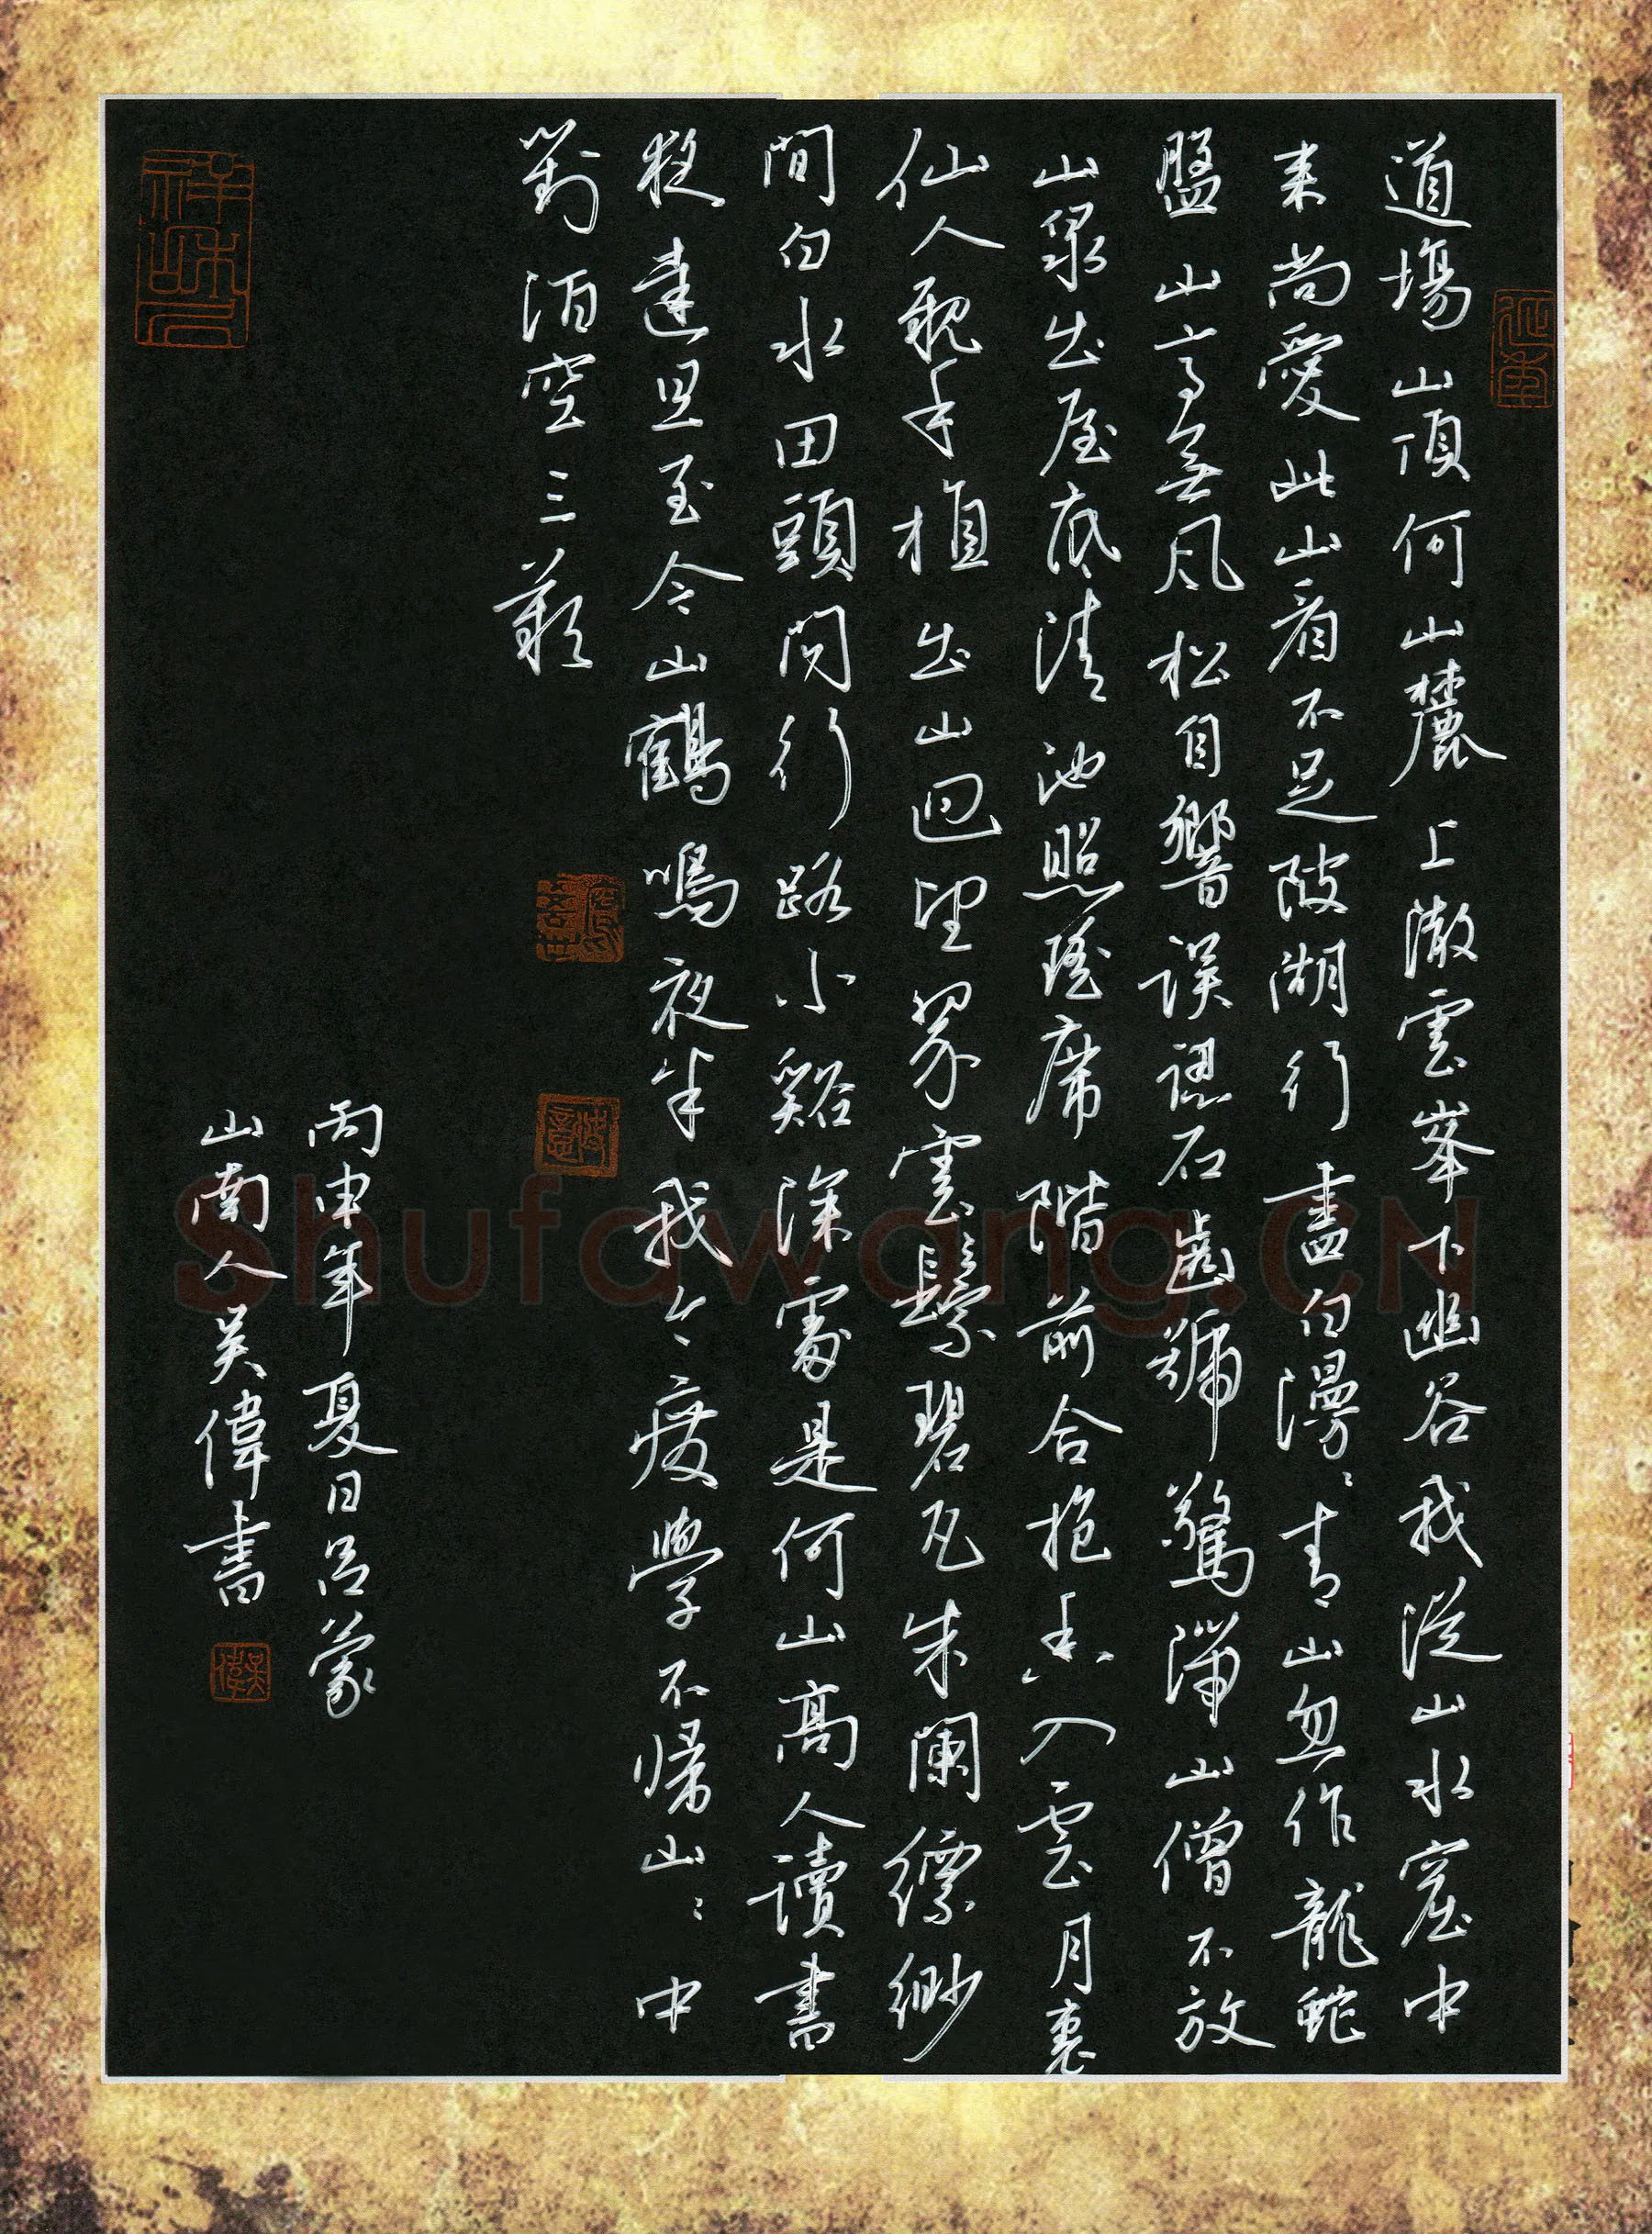 道場山頂何山麓上澈雲峯下幽谷我從山水窟中
来尚愛此山看不足陂湖行盡白漫〻青山忽作龍蛇
盤山高無風松自響誤認石齒號驚湍山僧不放
山泉出屋底清池照瑤席階前合抱香入雲月裏
仙人親手植出山迴望翠雲鬟碧瓦朱闌縹緲
間白水田頭問行路小谿深處是何山高人讀書
夜達旦至今山鶴鳴夜半我今廢學不歸山〻中
對酒空三歎
丙申年夏日吕蒙
山南人吴偉書
吴偉
Shufawang.CN